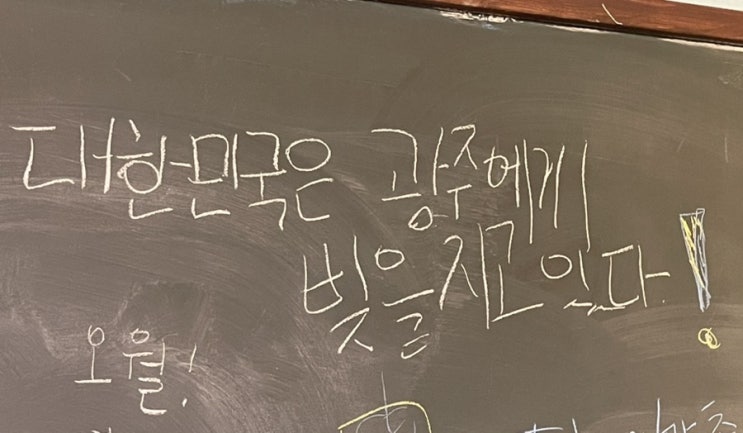 대한민국은 광주에게
빚을 지고 있다!
오월!